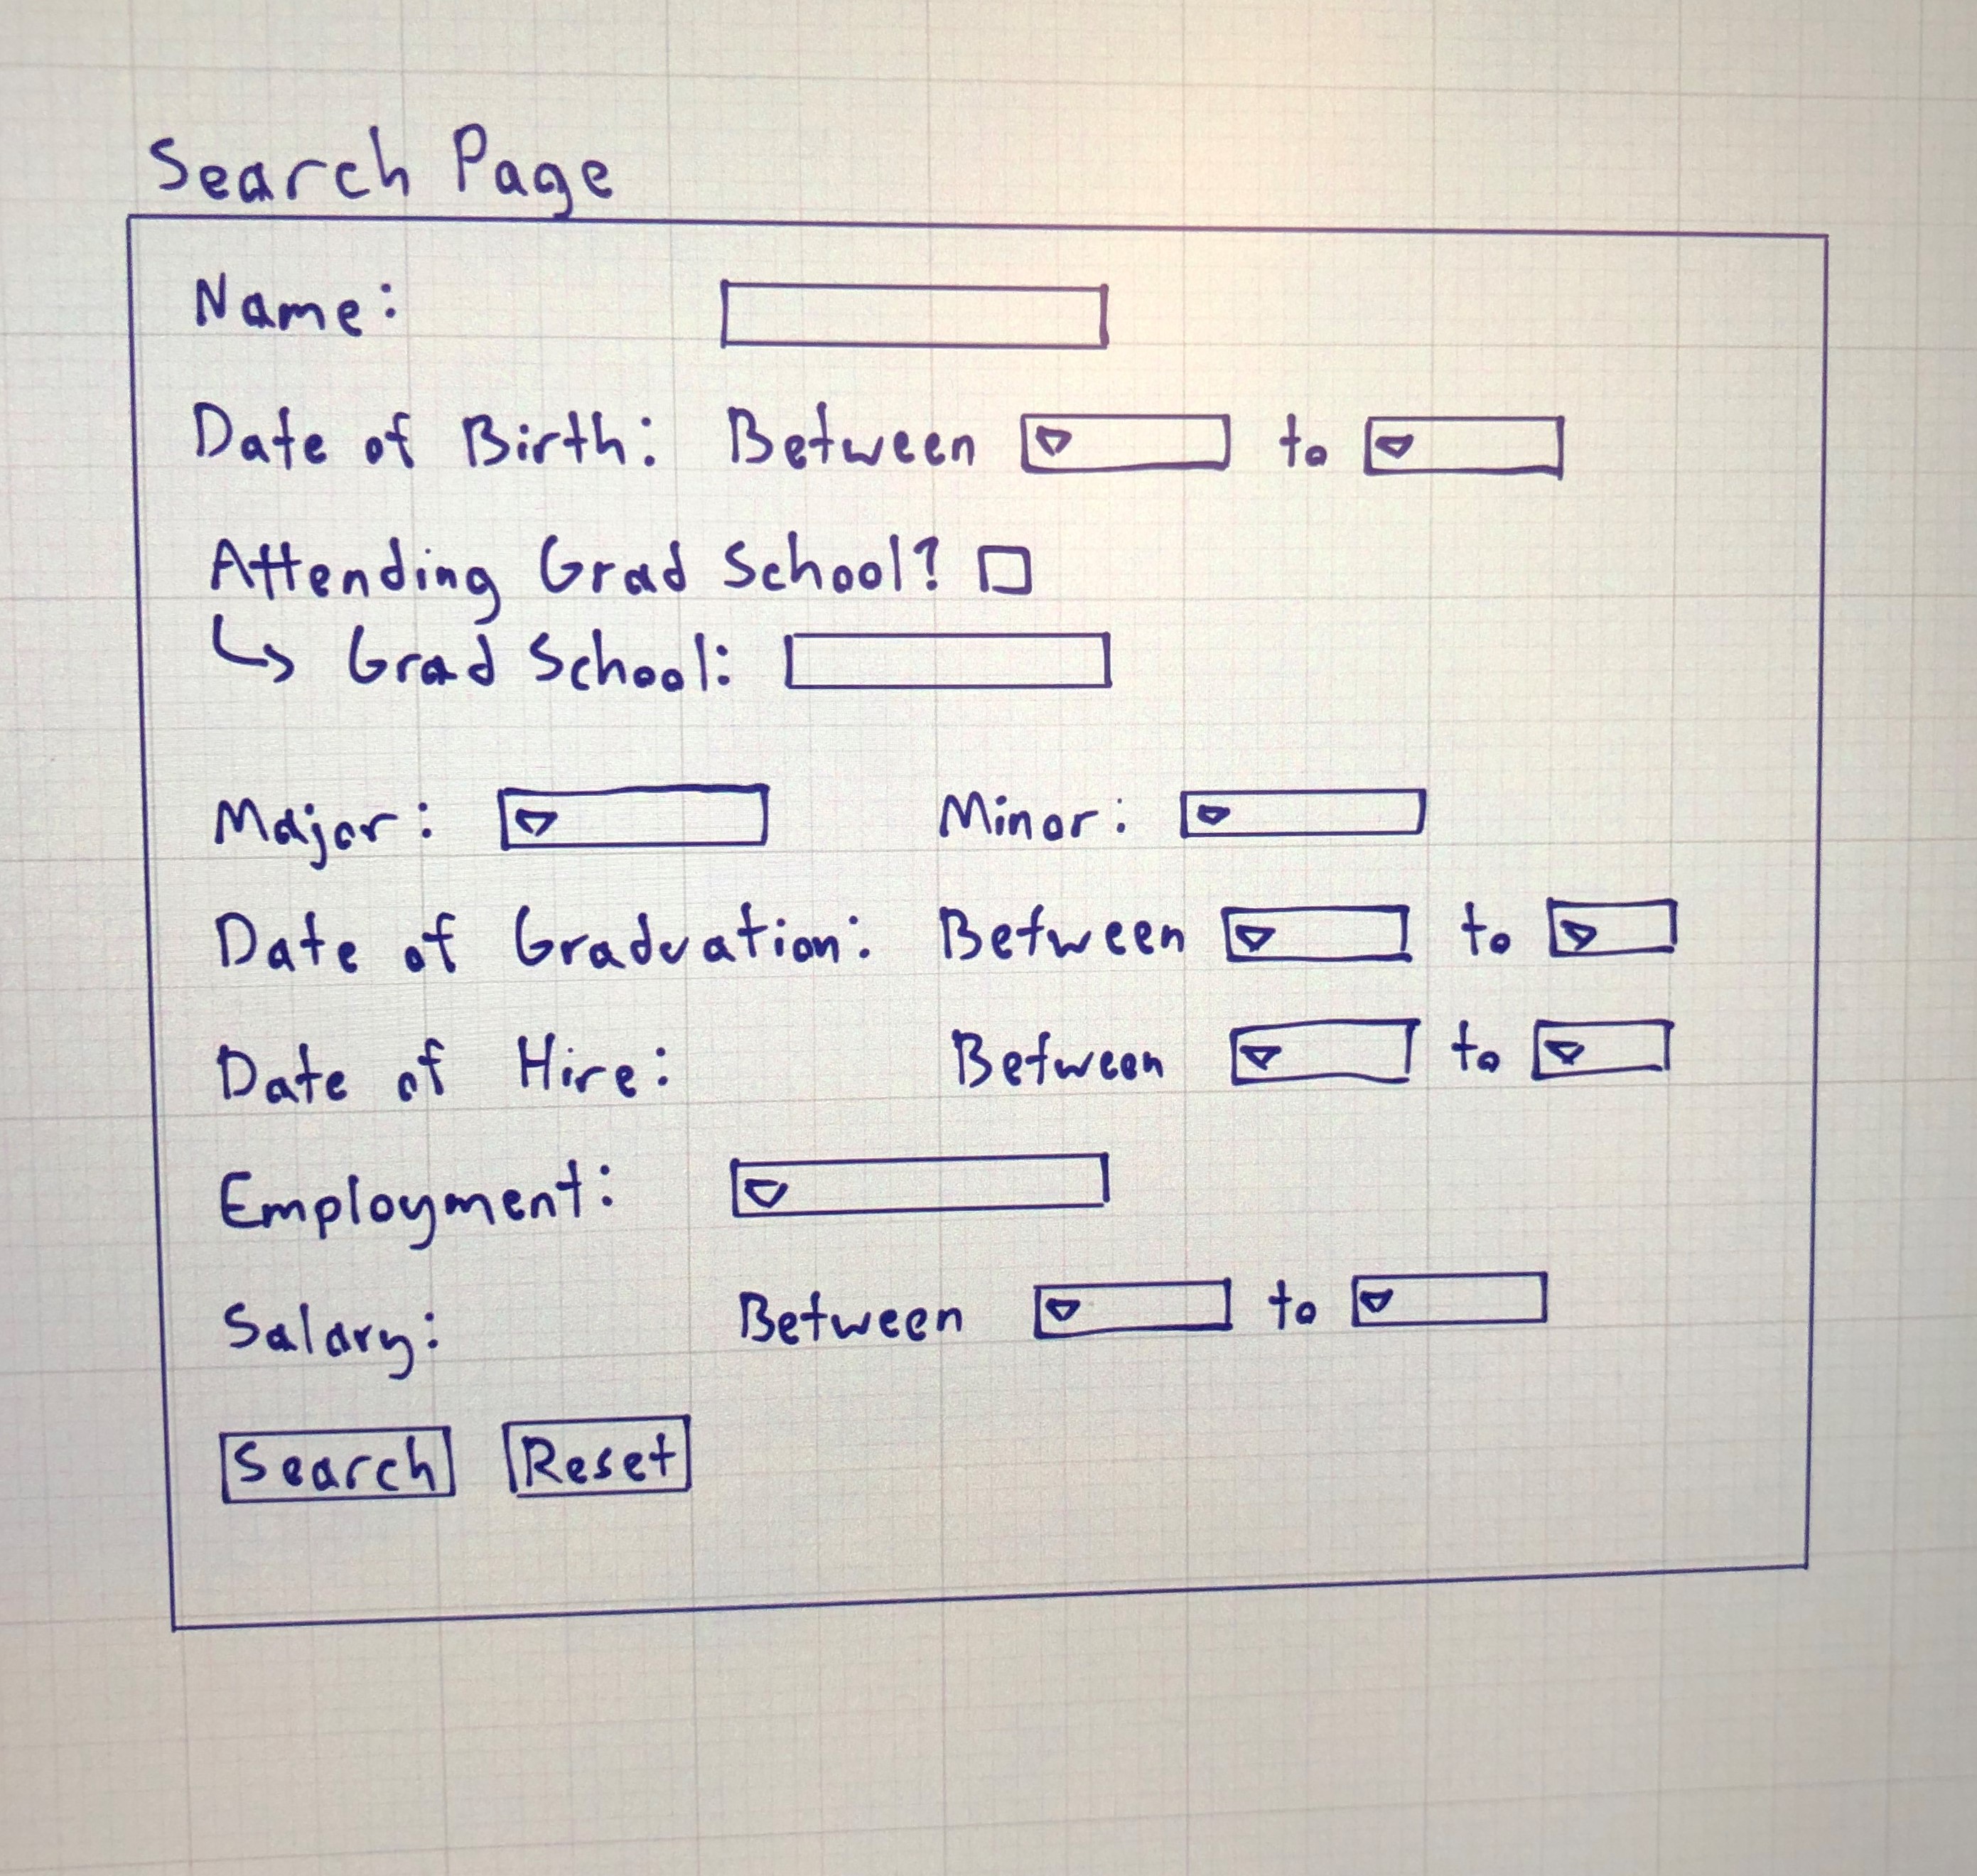 Search Page
Name:
Date of Birth: Between to
Attending Grad School?
↳ Grad School:
Major: Minor:
Date of Graduation: Between to
Date of Hire: Between to
Employment:
Salary: Between to
Search Reset